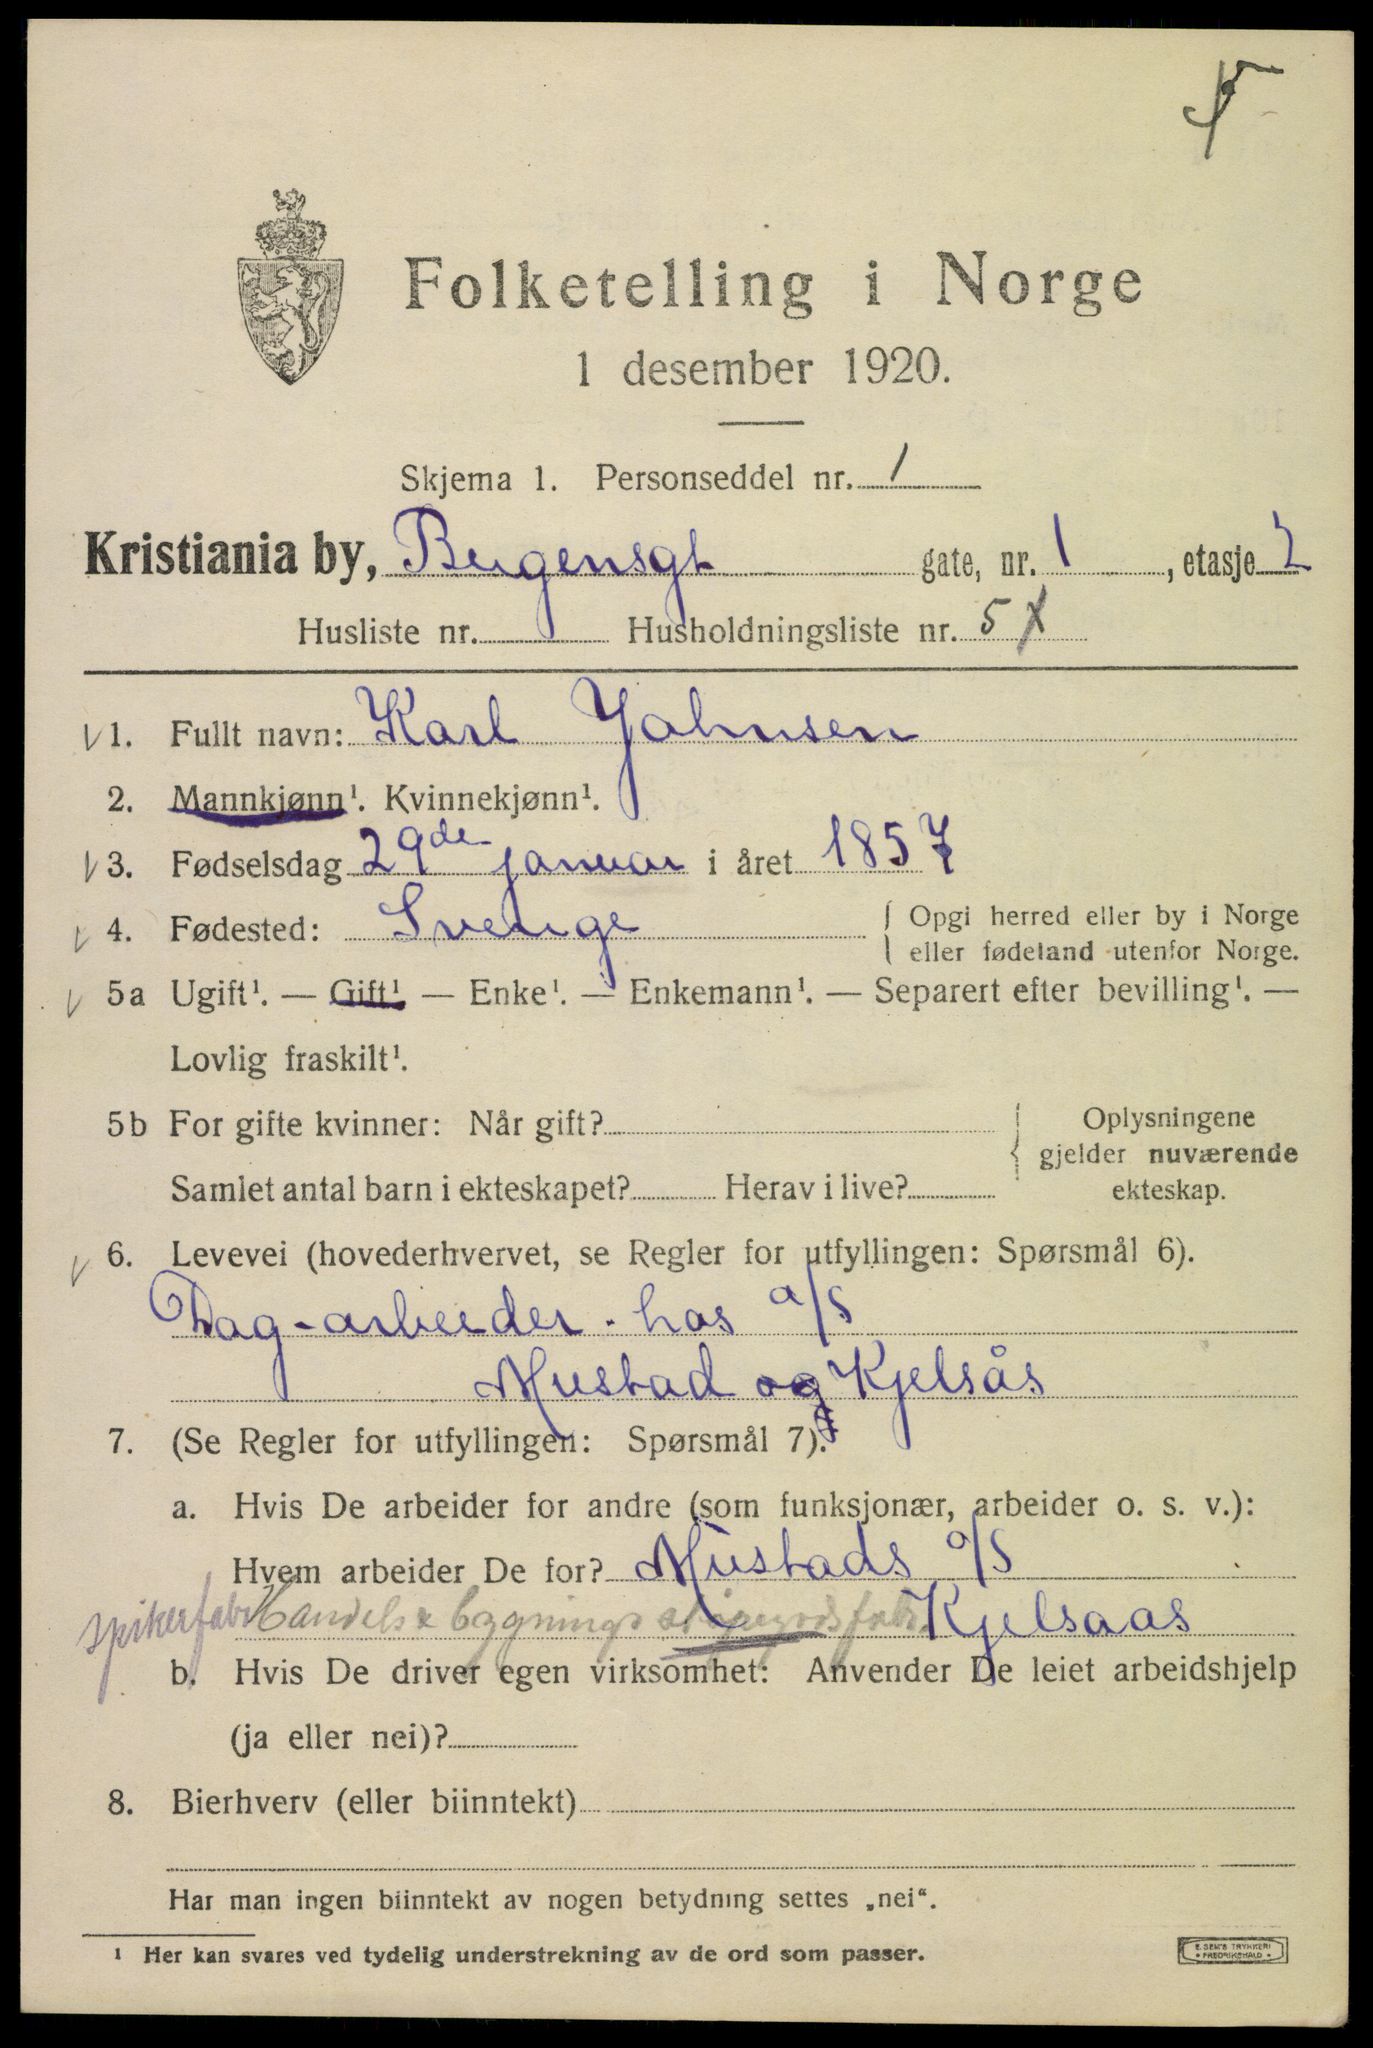 Folketelling i Norge
1 desember 1920.
Skjema 1. Personseddel nr. 1
Kristiania by, Bergensgt gate, nr. 1, etasje 2
Husliste nr. Husholdningsliste nr. 5
1. Fullt navn: Karl Johnsen
2. Mannkjønn¹. Kvinnekjønn¹.
3. Fødselsdag 29de januar i året 1857
4. Fødested: Sverige { Opgi herred eller by i Norge
eller fødeland utenfor Norge.
5a Ugift¹. — Gift¹ — Enke¹. — Enkemann¹. — Separert efter bevilling¹. —
Lovlig fraskilt¹.
5b For gifte kvinner: Når gift?
Samlet antal barn i ekteskapet? Herav i live?
Oplysningene
gjelder nuværende
ekteskap.
6. Levevei (hovederhvervet, se Regler for utfyllingen: Spørsmål 6).
Dag-arbeider. hos a/s
Mustad og Kjelsås
7. (Se Regler for utfyllingen: Spørsmål 7).
a. Hvis De arbeider for andre (som funksjonær, arbeider o. s. v.):
Hvem arbeider De for? Mustads a/s
spikerfabr Handels & bygnings Kjelsaas
b. Hvis De driver egen virksomhet: Anvender De leiet arbeidshjelp
(ja eller nei)?
8. Bierhverv (eller biinntekt)
Har man ingen biinntekt av nogen betydning settes „nei“.
¹ Her kan svares ved tydelig understrekning av de ord som passer.
E. SEM'S TRYKKERI
FREDRIKSHALD